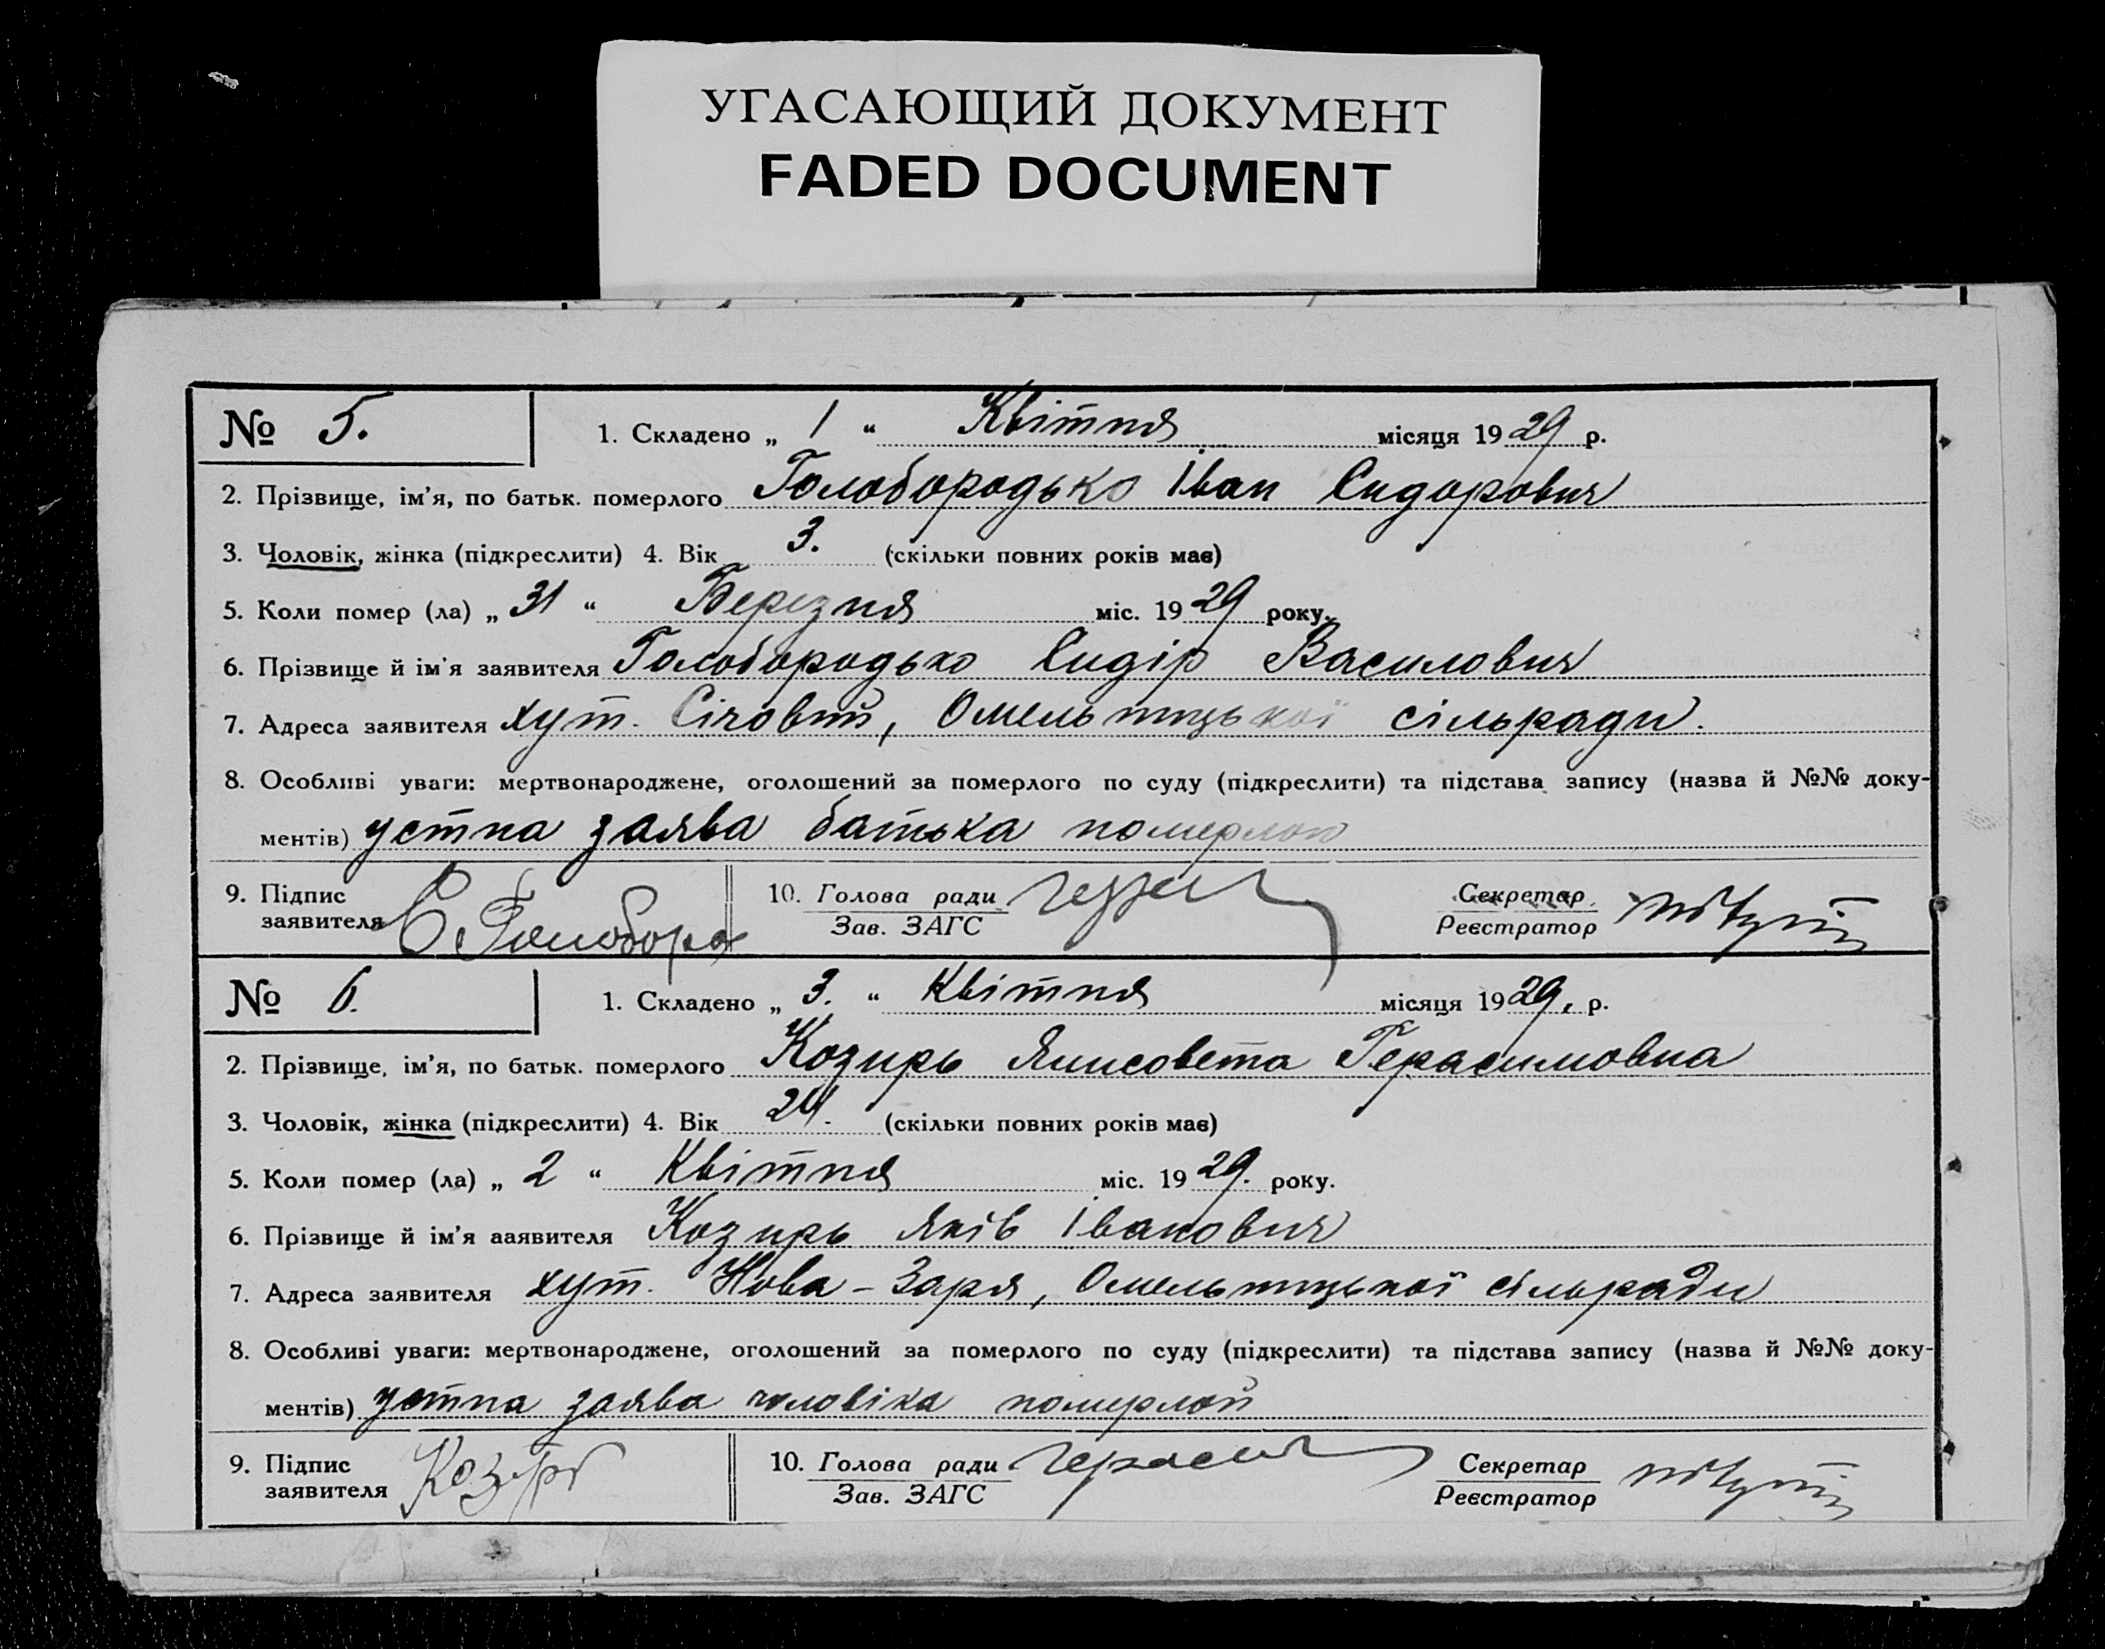 УГАСАЮЩИЙ ДОКУМЕНТ
FADED DOCUMENT
№ 5. 1. Складено „ 1 “ Квітня місяця 1929 р.
2. Прізвище, ім’я, по батьк. померлого Голобородько Іван Сидорович
3. Чоловік, жінка (підкреслити) 4. Вік 3. (скільки повних років має)
5. Коли помер (ла) „ 31 “ Березня міс. 1929 року.
6. Прізвище й ім’я заявителя Голобородько Сидір Василович
7. Адреса заявителя хут. Січовий, Омельницької сільради.
8. Особливі уваги: мертвонароджене, оголошений за померлого по суду (підкреслити) та підстава запису (назва й №№ доку-
ментів) устна заява батька померлого
9. Підпис заявителя С. Голобород 10. Голова ради Секретар
Зав. ЗАГС Реєстратор
№ 6. 1. Складено „ 3. “ Квітня місяця 1929. р.
2. Прізвище, ім’я, по батьк. померлого Козирь Ялисовета Герасимовна
3. Чоловік, жінка (підкреслити) 4. Вік 24. (скільки повних років має)
5. Коли помер (ла) „ 2 “ Квітня міс. 1929. року.
6. Прізвище й ім’я заявителя Козирь Яків Іванович
7. Адреса заявителя хут. Нова-Заря, Омельницької сільради
8. Особливі уваги: мертвонароджене, оголошений за померлого по суду (підкреслити) та підстава запису (назва й №№ доку-
ментів) устна заява чоловіка померлой
9. Підпис заявителя Козирь 10. Голова ради Секретар
Зав. ЗАГС Реєстратор